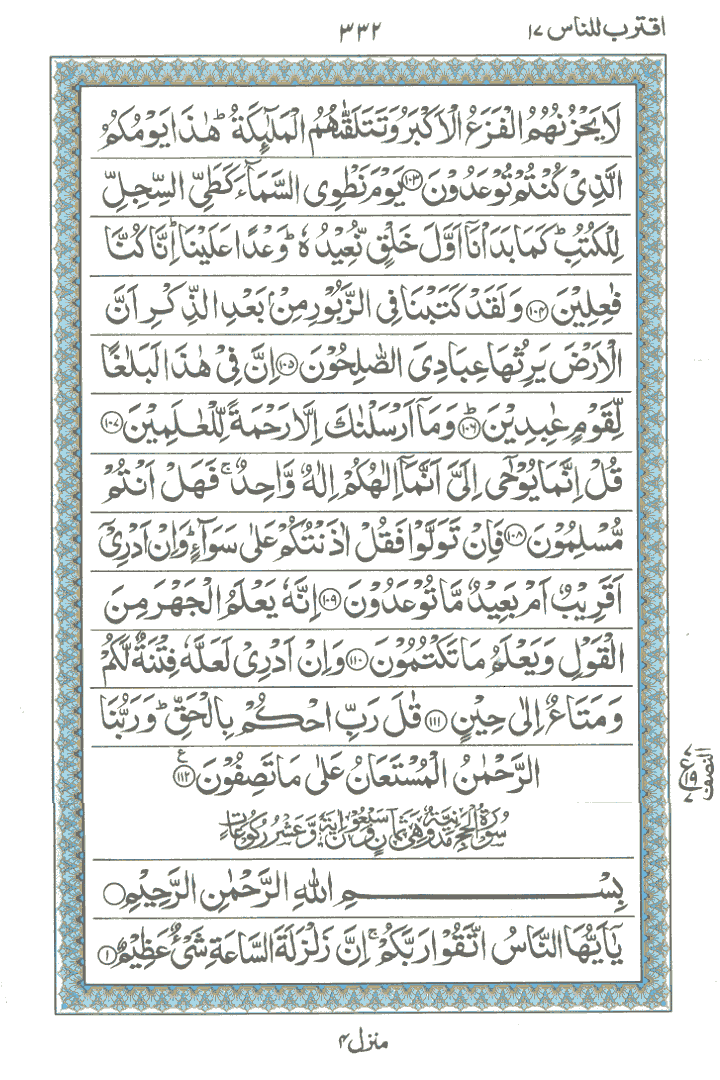 اقترب للناس ١٧
٣٣٢
لَا يَحْزُنُهُمُ الْفَزَعُ الْاَكْبَرُ وَتَتَلَقّٰىهُمُ الْمَلٰٓئِكَةُ ؕ هٰذَا يَوْمُكُمُ
الَّذِىْ كُنْتُمْ تُوْعَدُوْنَ ﴿۱۰۳﴾ يَوْمَ نَطْوِى السَّمَآءَ كَطَىِّ السِّجِلِّ
لِلْكُتُبِ ؕ كَمَا بَدَاْنَاۤ اَوَّلَ خَلْقٍ نُّعِيْدُهٗ ؕ وَعْدًا عَلَيْنَا ؕ اِنَّا كُنَّا
فٰعِلِيْنَ ﴿۱۰۴﴾ وَلَقَدْ كَتَبْنَا فِى الزَّبُوْرِ مِنْۢ بَعْدِ الذِّكْرِ اَنَّ
الْاَرْضَ يَرِثُهَا عِبَادِىَ الصّٰلِحُوْنَ ﴿۱۰۵﴾ اِنَّ فِىْ هٰذَا لَبَلٰغًا
لِّقَوْمٍ عٰبِدِيْنَ ؕ ﴿۱۰۶﴾ وَمَاۤ اَرْسَلْنٰكَ اِلَّا رَحْمَةً لِّلْعٰلَمِيْنَ ﴿۱۰۷﴾
قُلْ اِنَّمَا يُوْحٰٓى اِلَىَّ اَنَّمَاۤ اِلٰهُكُمْ اِلٰهٌ وَّاحِدٌ ۚ فَهَلْ اَنْتُمْ
مُّسْلِمُوْنَ ﴿۱۰۸﴾ فَاِنْ تَوَلَّوْا فَقُلْ اٰذَنْتُكُمْ عَلٰى سَوَآءٍ ؕ وَاِنْ اَدْرِىْۤ
اَقَرِيْبٌ اَمْ بَعِيْدٌ مَّا تُوْعَدُوْنَ ﴿۱۰۹﴾ اِنَّهٗ يَعْلَمُ الْجَهْرَ مِنَ
الْقَوْلِ وَيَعْلَمُ مَا تَكْتُمُوْنَ ﴿۱۱۰﴾ وَاِنْ اَدْرِىْ لَعَلَّهٗ فِتْنَةٌ لَّكُمْ
وَمَتَاعٌ اِلٰى حِيْنٍ ﴿۱۱۱﴾ قٰلَ رَبِّ احْكُمْ بِالْحَقِّ ؕ وَرَبُّنَا
الرَّحْمٰنُ الْمُسْتَعَانُ عَلٰى مَا تَصِفُوْنَ ﴿۱۱۲﴾ ع
النصف
ع ١٩
سُوْرَةُ الْحَجِّ مَدَنِيَّةٌ وَّهِىَ ثَمَانٍ وَّسَبْعُوْنَ اٰيَةً وَّعَشْرُ رُكُوْعَاتٍ
بِسْمِ اللّٰهِ الرَّحْمٰنِ الرَّحِيْمِ
يٰۤاَيُّهَا النَّاسُ اتَّقُوْا رَبَّكُمْ ۚ اِنَّ زَلْزَلَةَ السَّاعَةِ شَىْءٌ عَظِيْمٌ ﴿۱﴾
منزل ۴